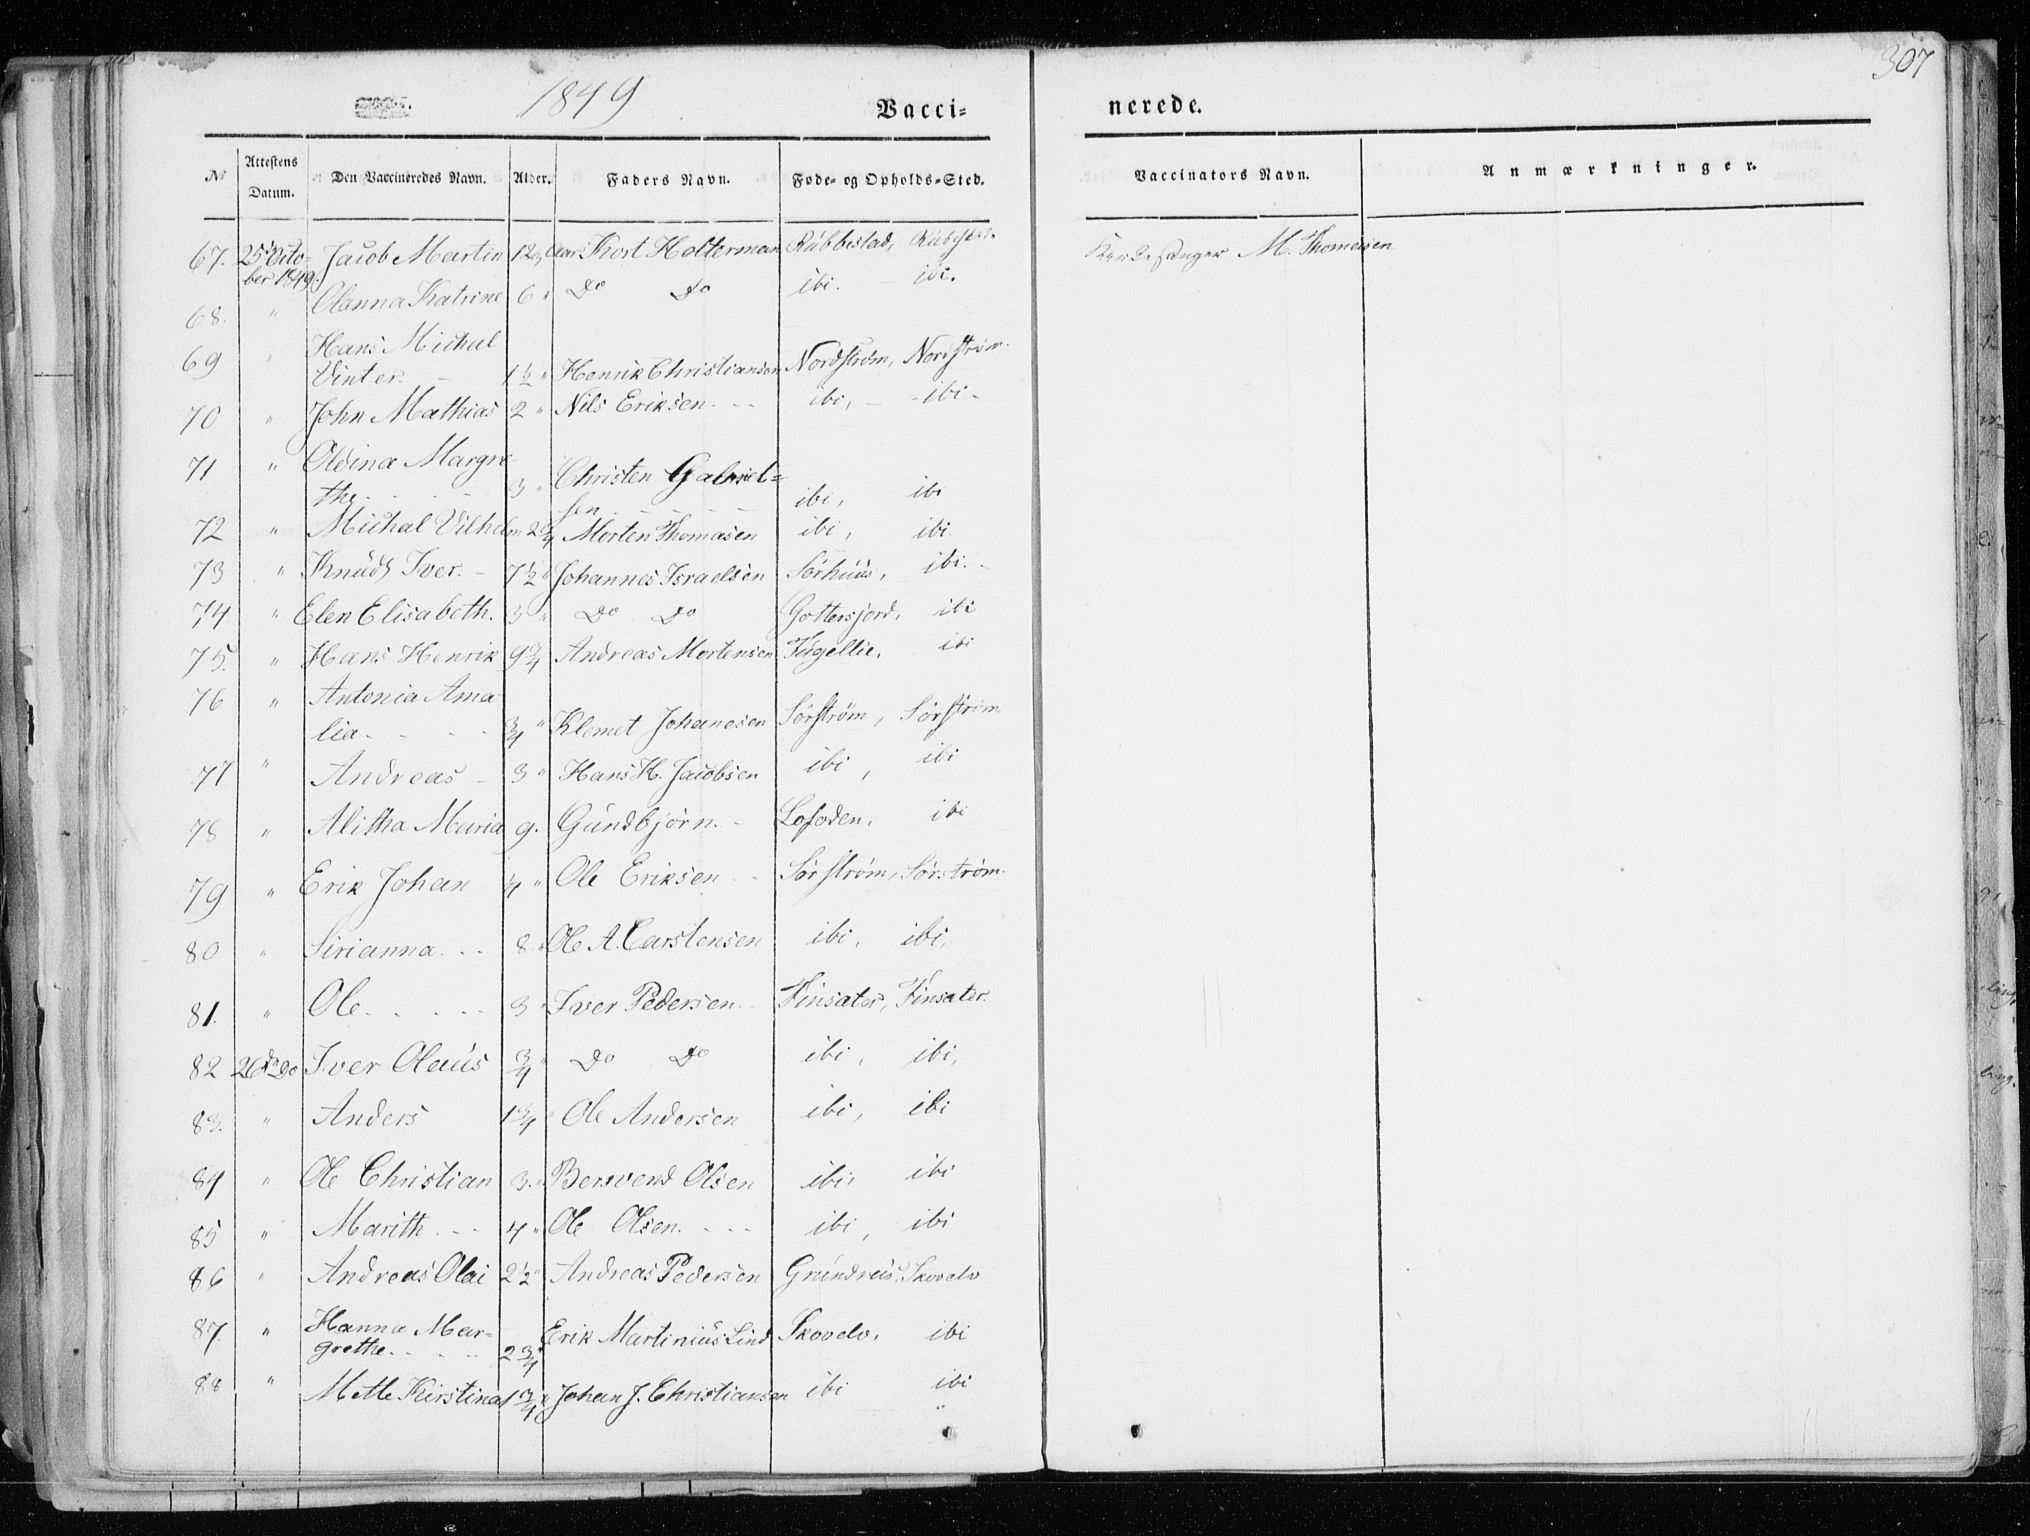 307
1849
Vacci= nerede.
No Attestens Datum. Den Vaccineredes Navn. Alder. Faders Navn. Føde- og Opholds-Sted. Vaccinators Navn. Anmærkninger.
67. 25 Octo- Jacob Martin Kort Holterman Rubbestad, M. Thomesen
ber 1849.
68. " Olanna Katrine 6 " Do Do ibi. ibi.
69 " Hans Michal
Vinter. 1½ " Henrik Christiansen Nordstrøm, Nordstrøm.
70 " John Mathias 2 " Nils Eriksen. ibi, ibi
71 " Oldina Margre
the 3 " Christen Gabriel=
sen ibi, ibi
72 " Michal Vilhelm 2¾ Morten Thomasen ibi, ibi
73 " Knud Iver. 7½ " Johannes Israelsen Sørhuus, ibi.
74 " Elen Elisabeth. 3 " Do Do Gottersjord, ibi
75. " Hans Henrik 9¾ Andreas Mortensen ibi
76 " Antonia Ama
lia ¾ " Klemet Johanesen Sørstrøm, Sørstrøm
77 " Andreas 3 " Hans H. Jacobsen ibi, ibi
78 " Alitha Maria 9. Gundbjørn. Lofoden, ibi
79 " Erik Johan ¼ " Ole Eriksen Sørstrøm, Sørstrøm
80 " Sirianna 8 " Ole A. Carstensen ibi, ibi,
81. " Ole 3 " Iver Pedersen Finsæter, Finsæter.
82 26de Do Iver Olaus ¾ " Do Do ibi, ibi,
83. " Anders 1¾ Ole Andersen ibi, ibi
84 " Ole Christian 3. " Bersvend Olsen ibi, ibi
85 " Marith 4 " Ole Olsen. ibi, ibi
86 " Andreas Olai 2½ " Andreas Pedersen Skovelv
87 " Hanna Mar=
grethe 2¾ Erik Martinius Lind Skovelv, ibi
88 " Mette Kirstina 1¾ " Johan J. Christiansen ibi ibi